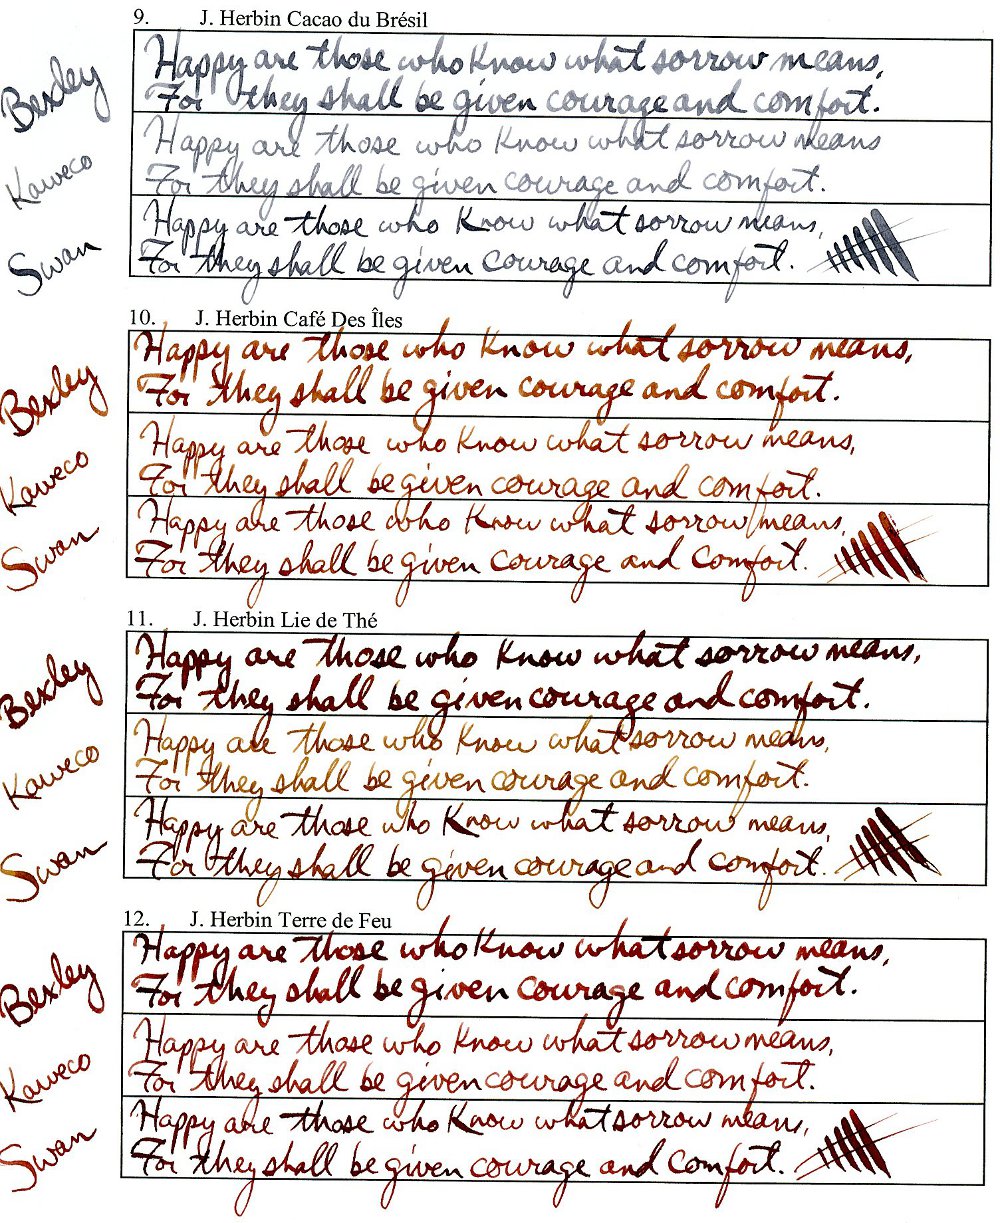 9. J. Herbin Cacao du Brésil
Bexley
Happy are those who Know what sorrow means,
For they shall be given courage and comfort.
Kaweco
Happy are those who Know what sorrow means
For they shall be given courage and comfort.
Swan
Happy are those who Know what sorrow means,
For they shall be given courage and comfort.
10. J. Herbin Café Des Îles
Bexley
Happy are those who Know what sorrow means,
For they shall be given courage and comfort.
Kaweco
Happy are those who Know what sorrow means,
For they shall be given courage and comfort.
Swan
Happy are those who Know what sorrow means,
For they shall be given courage and comfort.
11. J. Herbin Lie de Thé
Bexley
Happy are those who Know what sorrow means,
For they shall be given courage and comfort.
Kaweco
Happy are those who Know what sorrow means,
For they shall be given courage and comfort.
Swan
Happy are those who Know what sorrow means,
For they shall be given courage and comfort.
12. J. Herbin Terre de Feu
Bexley
Happy are those who Know what sorrow means,
For they shall be given courage and comfort.
Kaweco
Happy are those who Know what sorrow means,
For they shall be given courage and comfort.
Swan
Happy are those who Know what sorrow means,
For they shall be given courage and comfort.